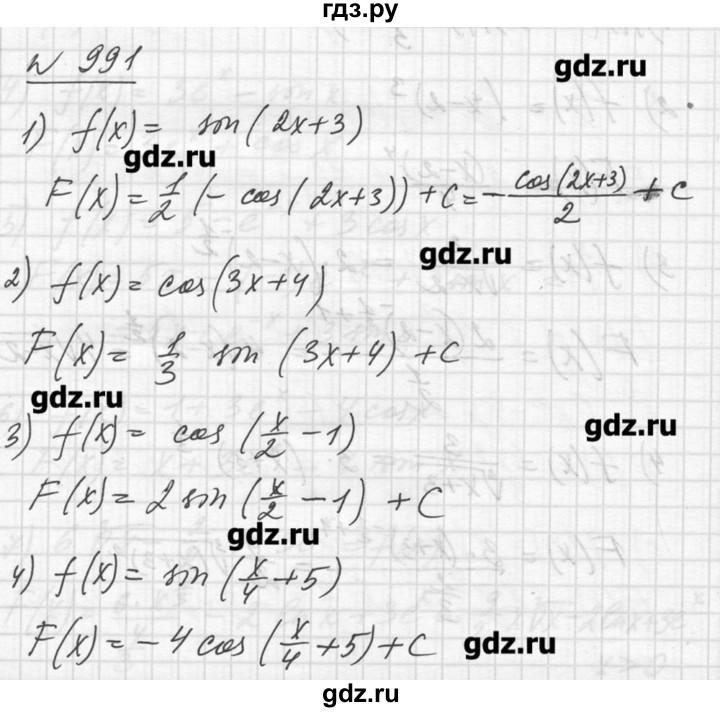 гдз.ру
№ 991
gdz.ru
1) f(x) = sin(2x+3)
gdz.ru
F(x) = 1/2 (- cos(2x+3)) + C = - cos(2x+3)/2 + C
gdz.ru
2) f(x) = cos(3x+4)
F(x) = 1/3 sin (3x+4) + C
gdz.ru
3) f(x) = cos (x/2 - 1)
gdz.ru
F(x) = 2 sin (x/2 - 1) + C
gdz.ru
4) f(x) = sin (x/4 + 5)
F(x) = - 4 cos (x/4 + 5) + C
gdz.ru
gdz.ru